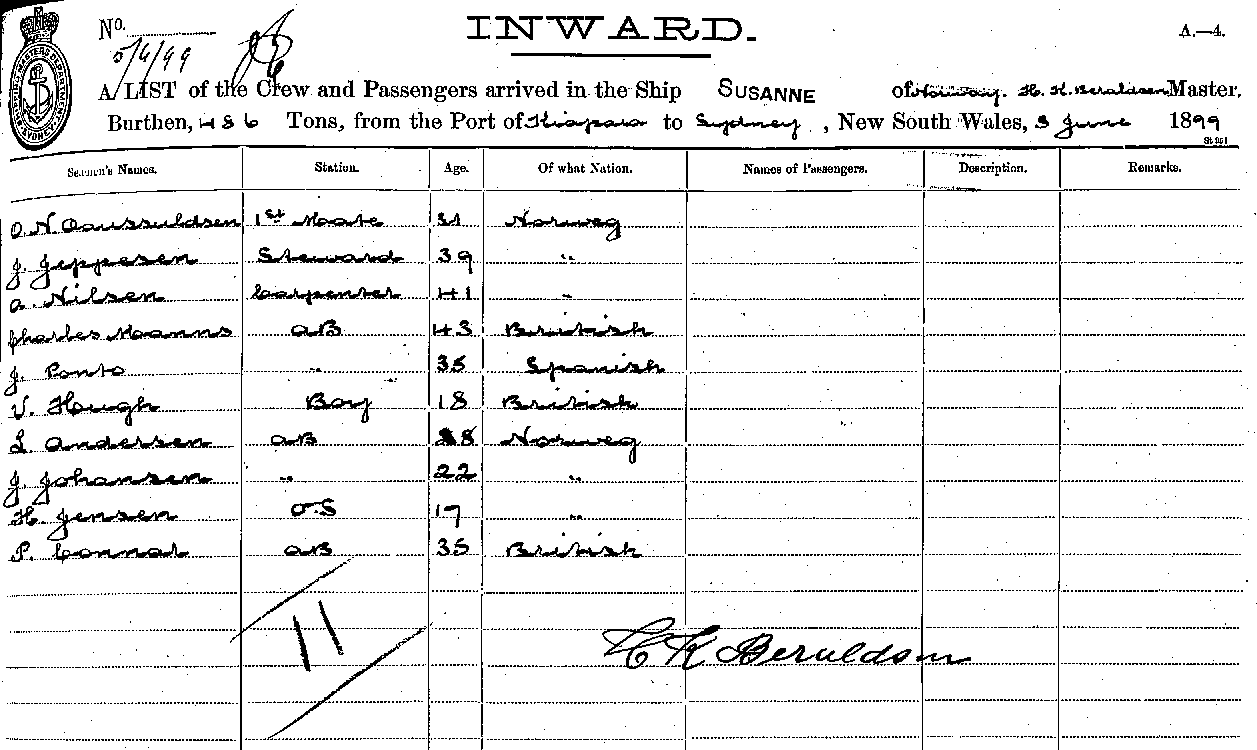 INWARD.
A.—4.
No.
5/6/99
A LIST of the Crew and Passengers arrived in the Ship SUSANNE of Norway. H. K. Beruldsen Master,
Burthen, 486 Tons, from the Port of Kiapara to Sydney, New South Wales, 3 June 1899
Seamen's Names. Station. Age. Of what Nation. Names of Passengers. Description. Remarks.
O. N 1st Maate 31 Norweg
J. Jeppesen Steward 39 "
A. Nilsen Carpenter 41 "
Charles Moanns AB 43 British
J. Ponto " 35 Spanish
V. Hough Boy 18 British
L. Andersen AB Norweg
J. Johansen " 22 "
H. Jensen O.S 17 "
P. Connal AB 35 British
11
H K Beruldsen